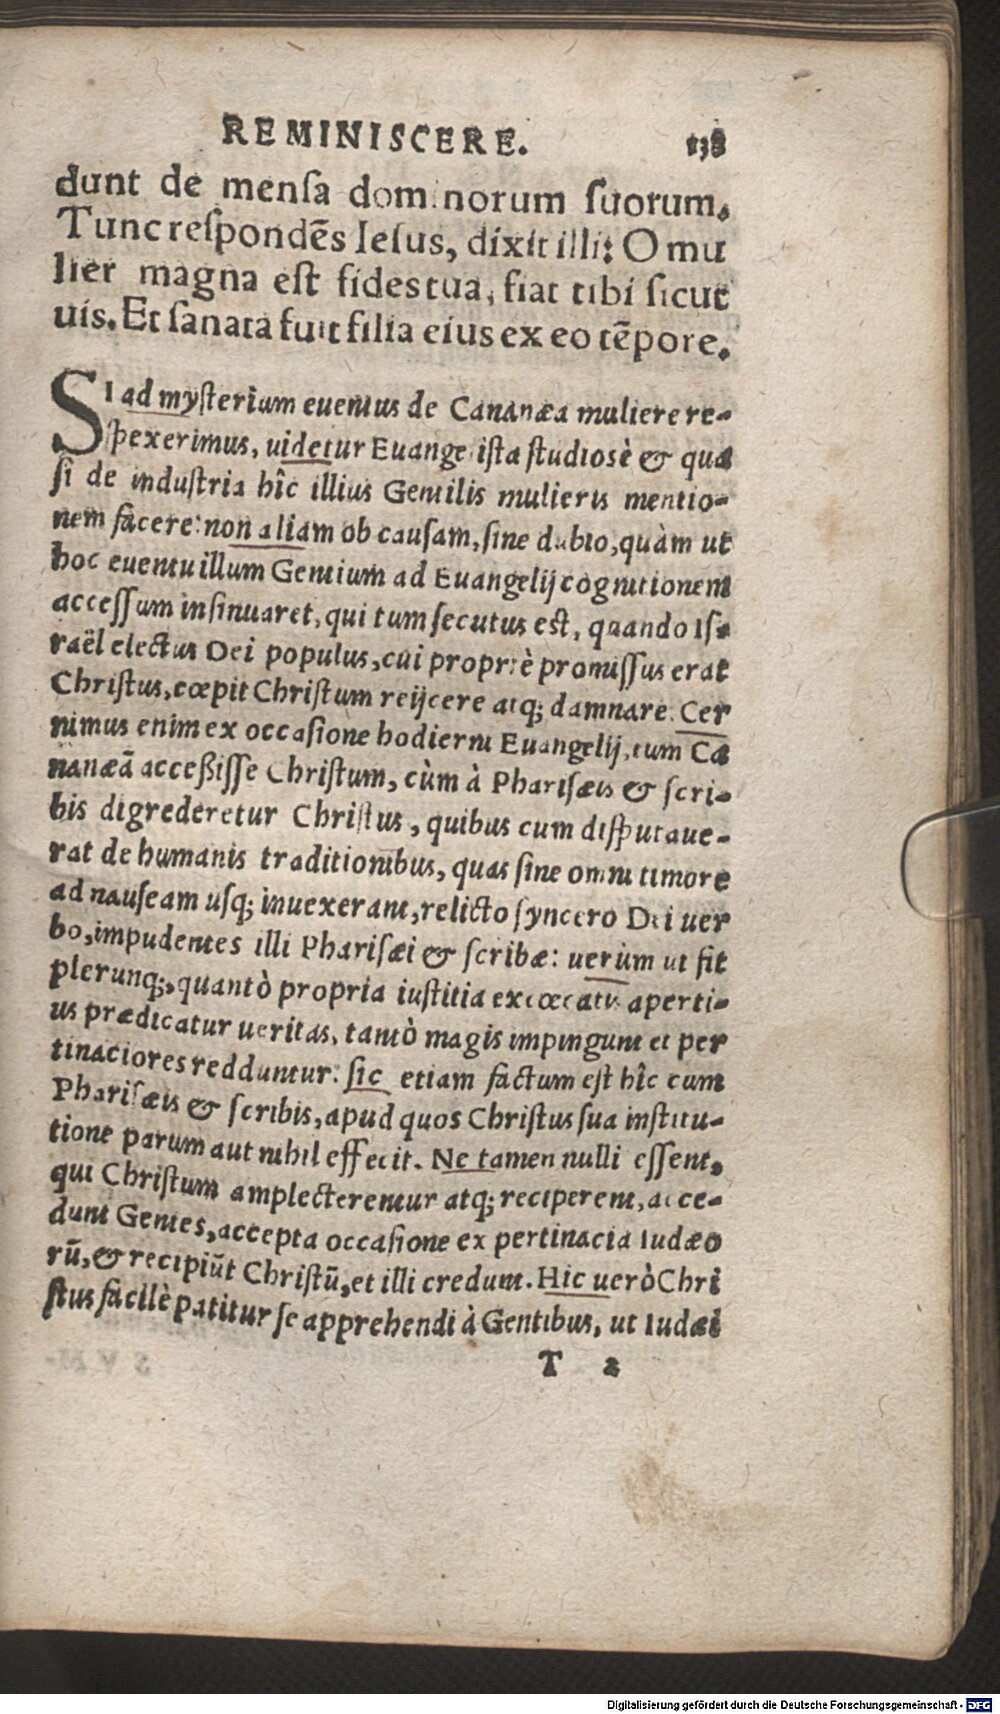 REMINISCERE. 138
dunt de menſa dominorum ſuorum.
Tunc reſpondẽs Ieſus, dixit illi: O mu
lier magna eſt fides tua, fiat tibi ſicut
uis. Et ſanata fuit filia eius ex eo tẽpore.
SI ad myſterium euentus de Cananæa muliere re-
ſpexerimus, uidetur Euangeliſta ſtudiosè & qua
ſi de induſtria hîc illius Gentilis mulieris mentio-
nem facere: non aliam ob cauſam, ſine dubio, quàm ut
hoc euentu illum Gentium ad Euangelij cognitionem
acceſſum inſinuaret, qui tum ſecutus eſt, quando Iſ-
raël electus Dei populus, cui propriè promiſſus erat
Chriſtus, cœpit Chriſtum reijcere atq; damnare. Cer
nimus enim ex occaſione hodierni Euangelij, tum Ca
nanæã acceßiſſe Chriſtum, cùm à Phariſæis & ſcri-
bis digrederetur Chriſtus, quibus cum diſputaue-
rat de humanis traditionibus, quas ſine omni timore
ad nauſeam uſq; inuexerant, relicto ſyncero Dei uer
bo, impudentes illi Phariſæi & ſcribæ: uerùm ut fit
plerunq;, quantò propria iuſtitia excœcatis aperti-
us prædicatur ueritas, tantò magis impingunt et per
tinaciores redduntur: ſic etiam factum eſt hîc cum
Phariſæis & ſcribis, apud quos Chriſtus ſua inſtitu-
tione parum aut nihil effecit. Ne tamen nulli eſſent,
qui Chriſtum amplecterentur atq; reciperent, acce-
dunt Gentes, accepta occaſione ex pertinacia Iudæo
rũ, & recipiũt Chriſtũ, et illi credunt. Hic uerò Chri
ſtus facilè patitur ſe apprehendi à Gentibus, ut Iudæi
T 2
Digitalisierung gefördert durch die Deutsche Forschungsgemeinschaft - DFG